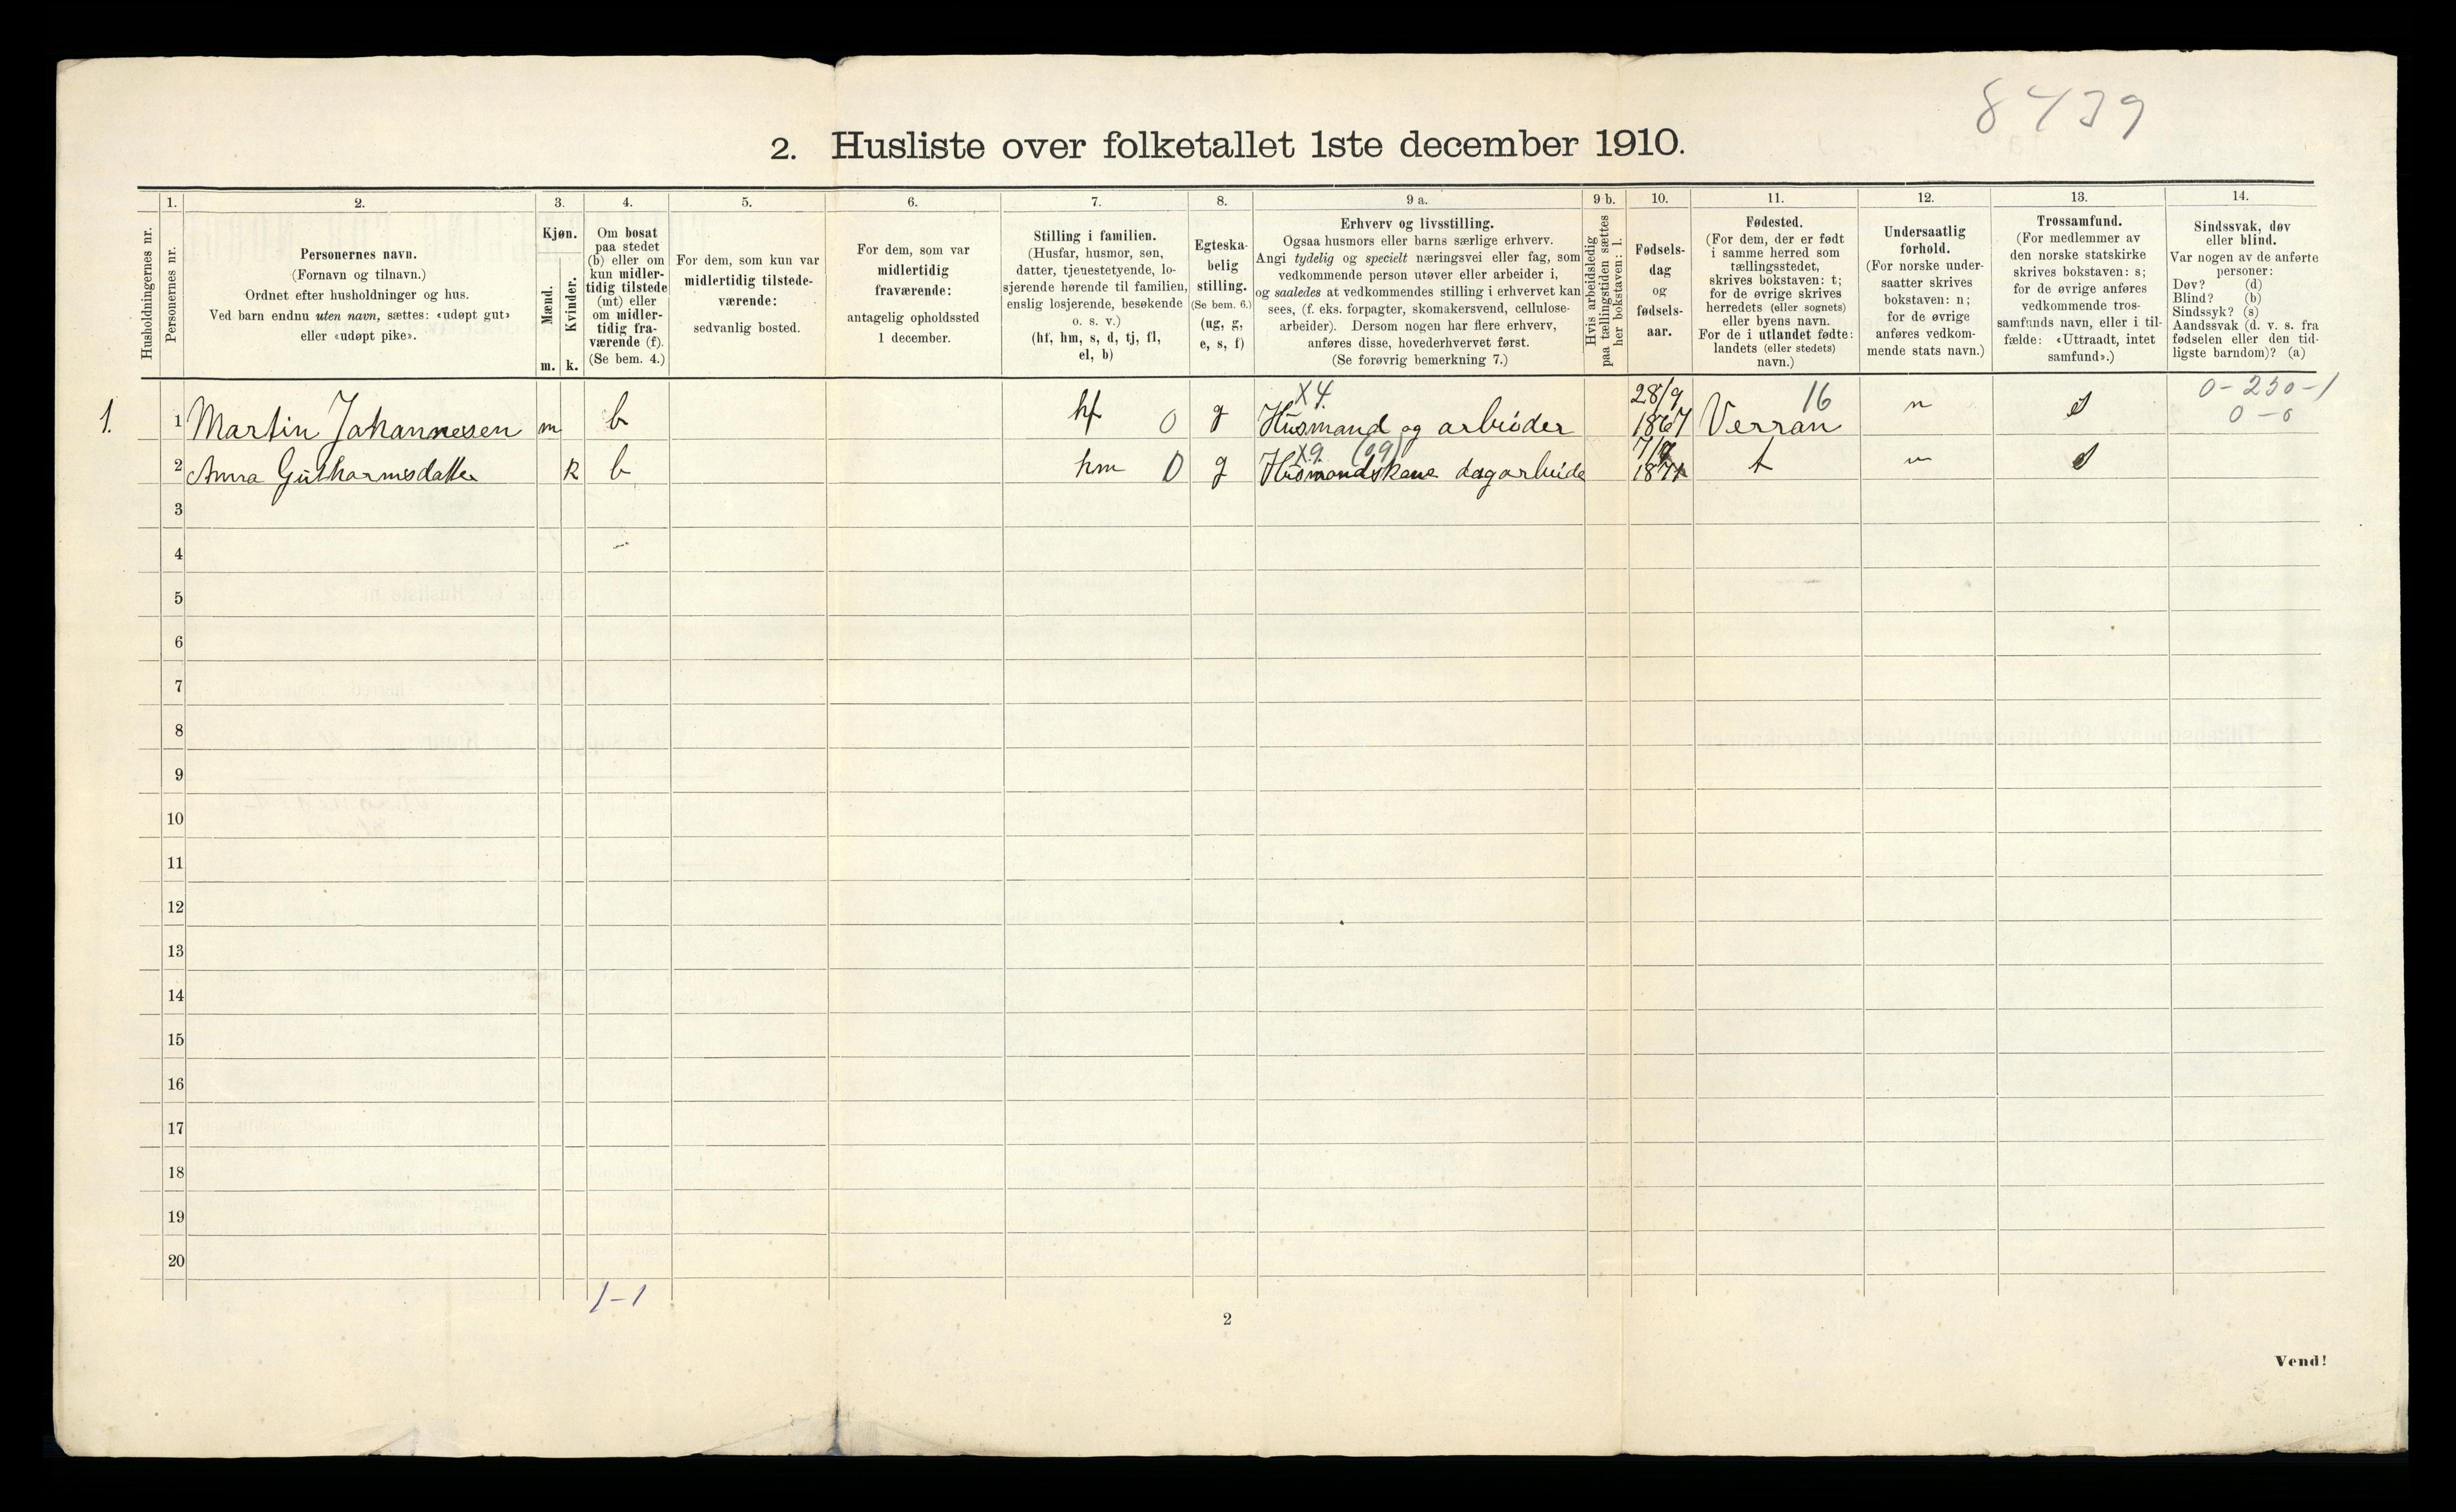 8439
2. Husliste over folketallet 1ste december 1910.
Husholdningernes nr.
1.
Personernes nr.
2.
Personernes navn.
(Fornavn og tilnavn.)
Ordnet efter husholdninger og hus.
Ved barn endnu uten navn, sættes: «udøpt gut»
eller «udøpt pike».
3.
Kjøn.
Mænd.
Kvinder.
m. k.
4.
Om bosat
paa stedet
(b) eller om
kun midler-
tidig tilstede
(mt) eller
om midler-
tidig fra-
værende (f).
(Se bem. 4.)
5.
For dem, som kun var
midlertidig tilstede-
værende:
sedvanlig bosted.
6.
For dem, som var
midlertidig
fraværende:
antagelig opholdssted
1 december.
7.
Stilling i familien.
(Husfar, husmor, søn,
datter, tjenestetyende, lo-
sjerende hørende til familien,
enslig losjerende, besøkende
o. s. v.)
(hf, hm, s, d, tj, fl,
el, b)
8.
Egteska-
belig
stilling.
(Se bem. 6.)
(ug, g,
e, s, f)
9 a.
Erhverv og livsstilling.
Ogsaa husmors eller barns særlige erhverv.
Angi tydelig og specielt næringsvei eller fag, som
vedkommende person utøver eller arbeider i,
og saaledes at vedkommendes stilling i erhvervet kan
sees, (f. eks. forpagter, skomakersvend, cellulose-
arbeider). Dersom nogen har flere erhverv,
anføres disse, hovederhvervet først.
(Se forøvrig bemerkning 7.)
9 b.
Hvis arbeidsledig
paa tællingstiden sættes
her bokstaven: l.
10.
Fødsels-
dag
og
fødsels-
aar.
11.
Fødested.
(For dem, der er født
i samme herred som
tællingsstedet,
skrives bokstaven: t;
for de øvrige skrives
herredets (eller sognets)
eller byens navn.
For de i utlandet fødte:
landets (eller stedets)
navn.)
12.
Undersaatlig
forhold.
(For norske under-
saatter skrives
bokstaven: n;
for de øvrige
anføres vedkom-
mende stats navn.)
13.
Trossamfund.
(For medlemmer av
den norske statskirke
skrives bokstaven: s;
for de øvrige anføres
vedkommende tros-
samfunds navn, eller i til-
fælde: «Uttraadt, intet
samfund».)
14.
Sindssvak, døv
eller blind.
Var nogen av de anførte
personer:
Døv? (d)
Blind? (b)
Sindssyk? (s)
Aandssvak (d. v. s. fra
fødselen eller den tid-
ligste barndom)? (a)
X4. 28/9 16 0-230-1
1. 1 Martin Johannesen m b hf 0 g Husmand og arbeider 1867 Verran n s 0-0
X9. (09)
2 Anna Guthormsdatter k b hm 0 g Husmandskone dagarbeide t n s
3
4
5
6
7
8
9
10
11
12
13
14
15
16
17
18
19
20
1-1
2
Vend!